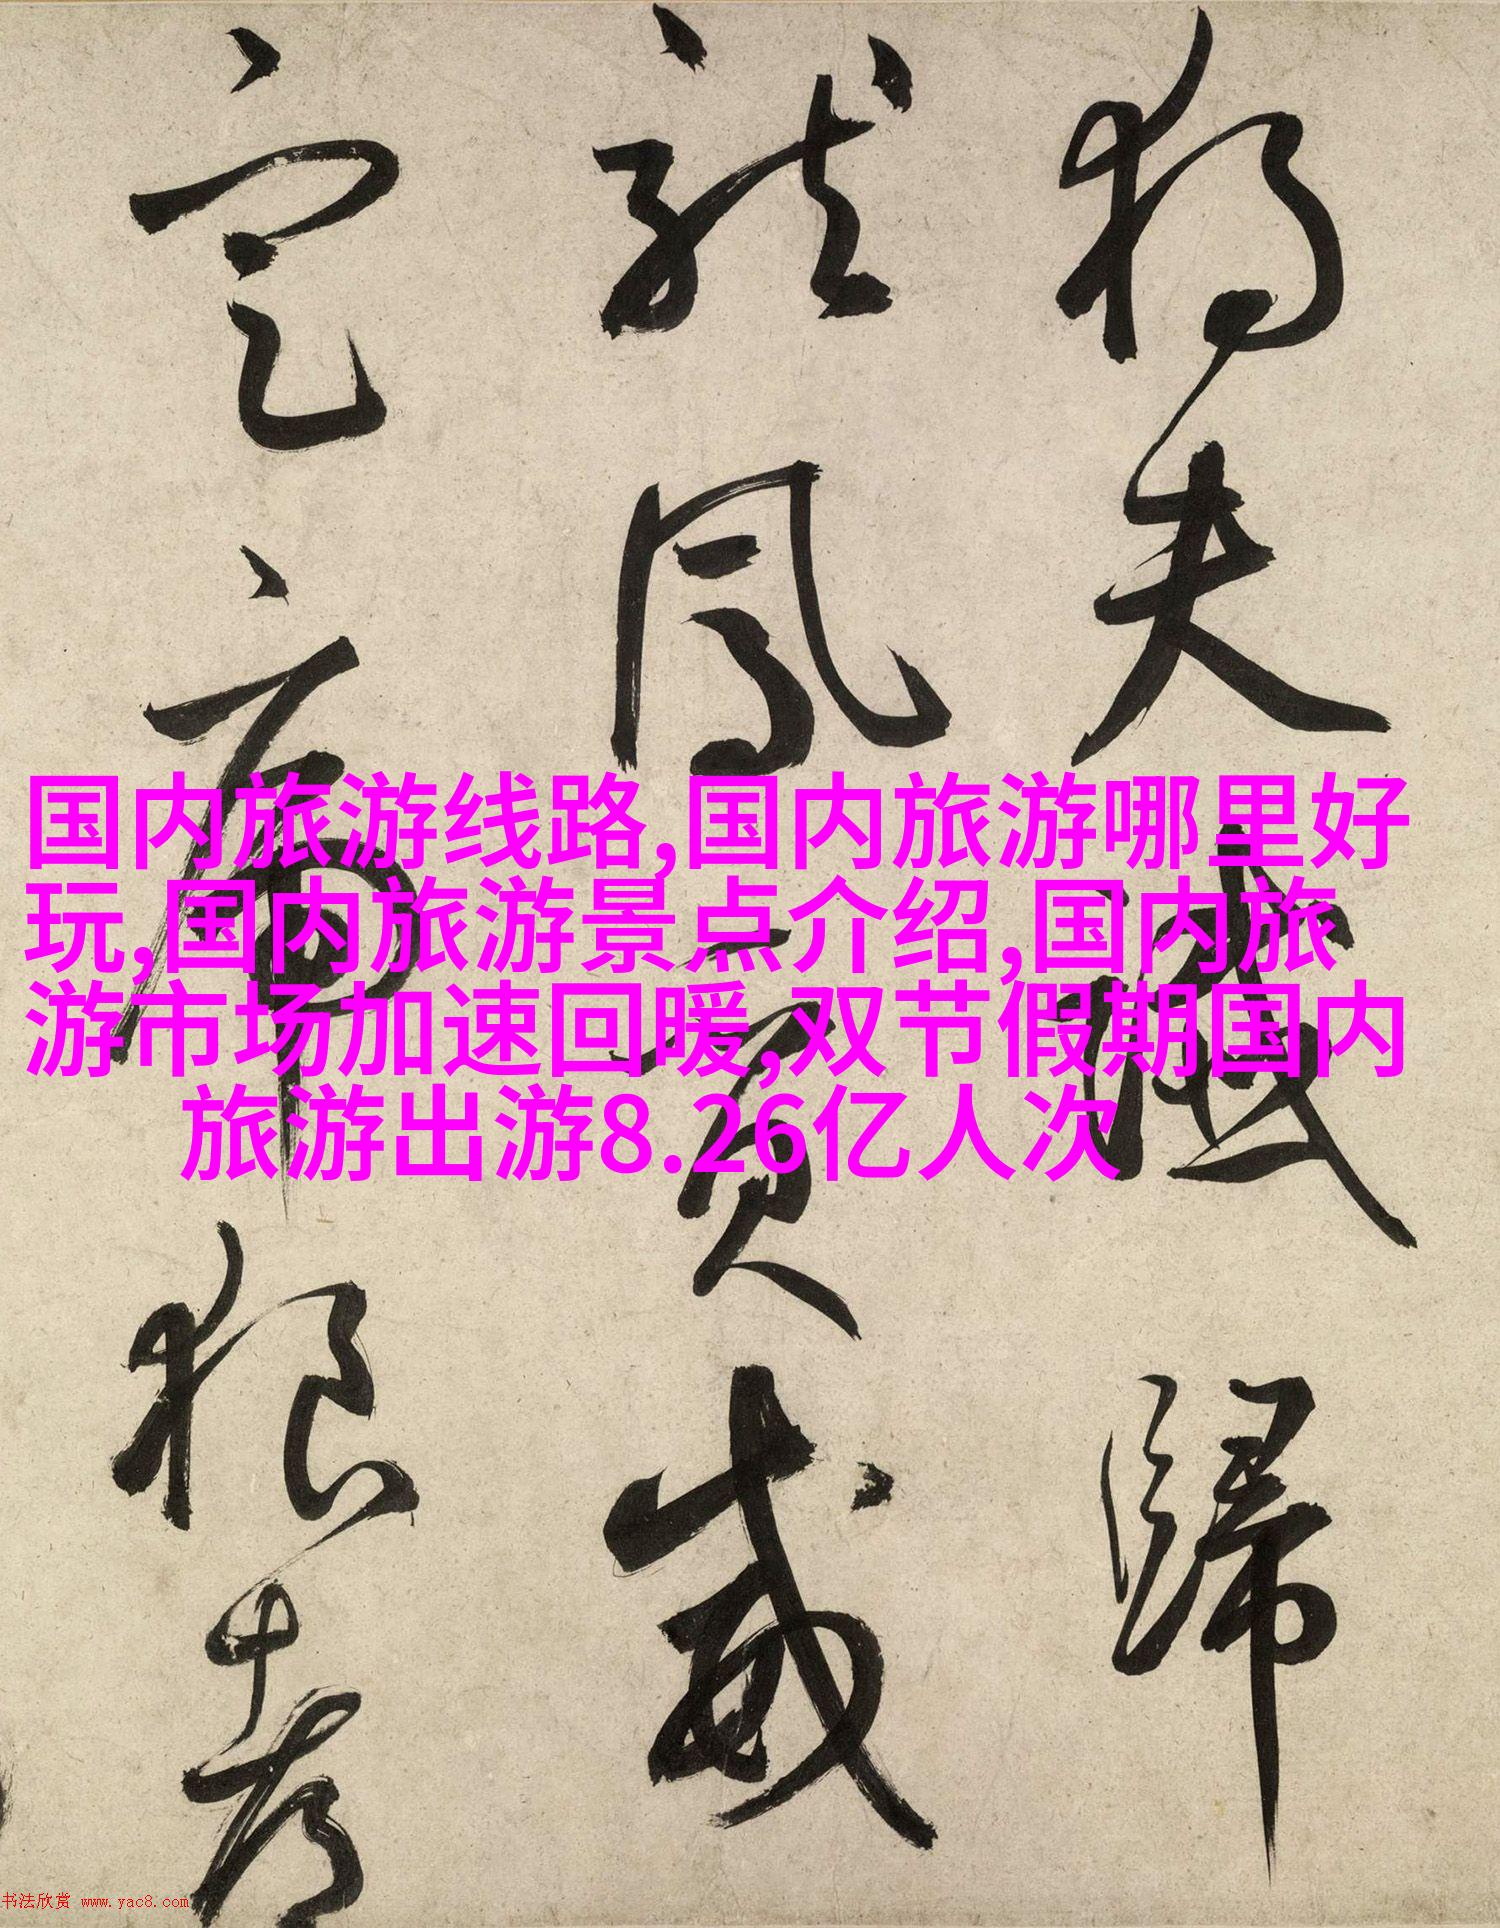 獨夫讖歸
龍鳳質威
定虎狼都
国内旅游线路,国内旅游哪里好
玩,国内旅游景点介绍,国内旅
游市场加速回暖,双节假期国内
旅游出游8.26亿人次
书法欣赏 www.yac8.com